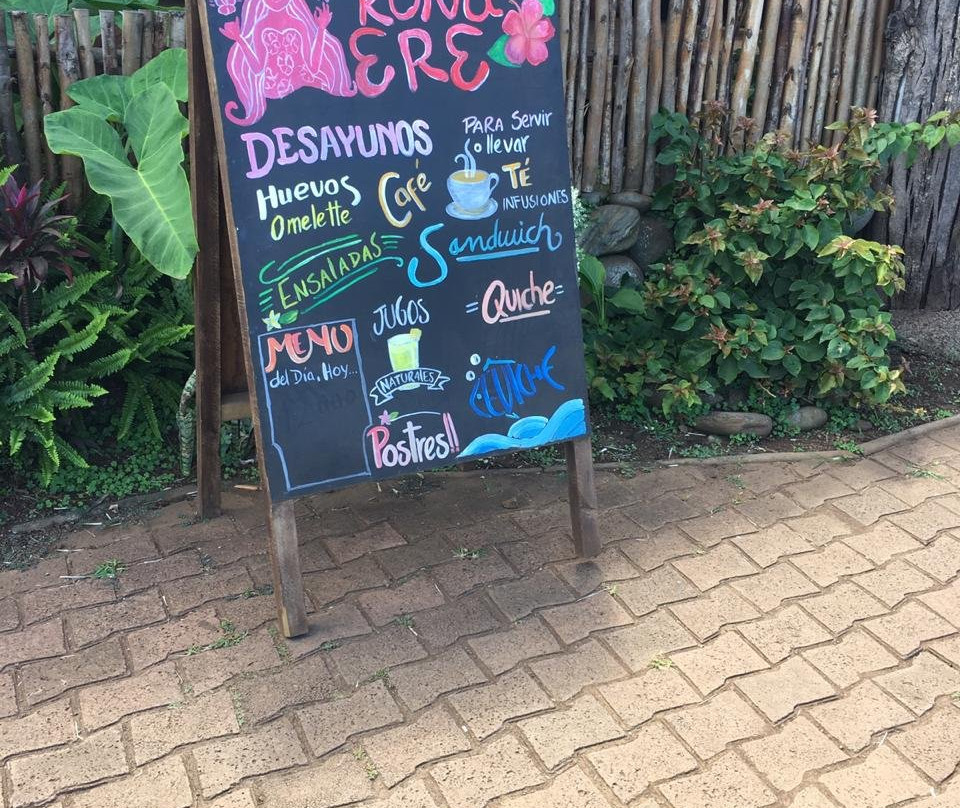 RUNA
ERE
DESAYUNOS
PARA Servir
o llevar
Huevos
Omelette
Café
TÉ
INFUSIONES
ENSALADAS
Sandwich
JUGOS
NATURALES
Quiche
MENÚ
del Día, Hoy...
CEVICHE
Postres!!